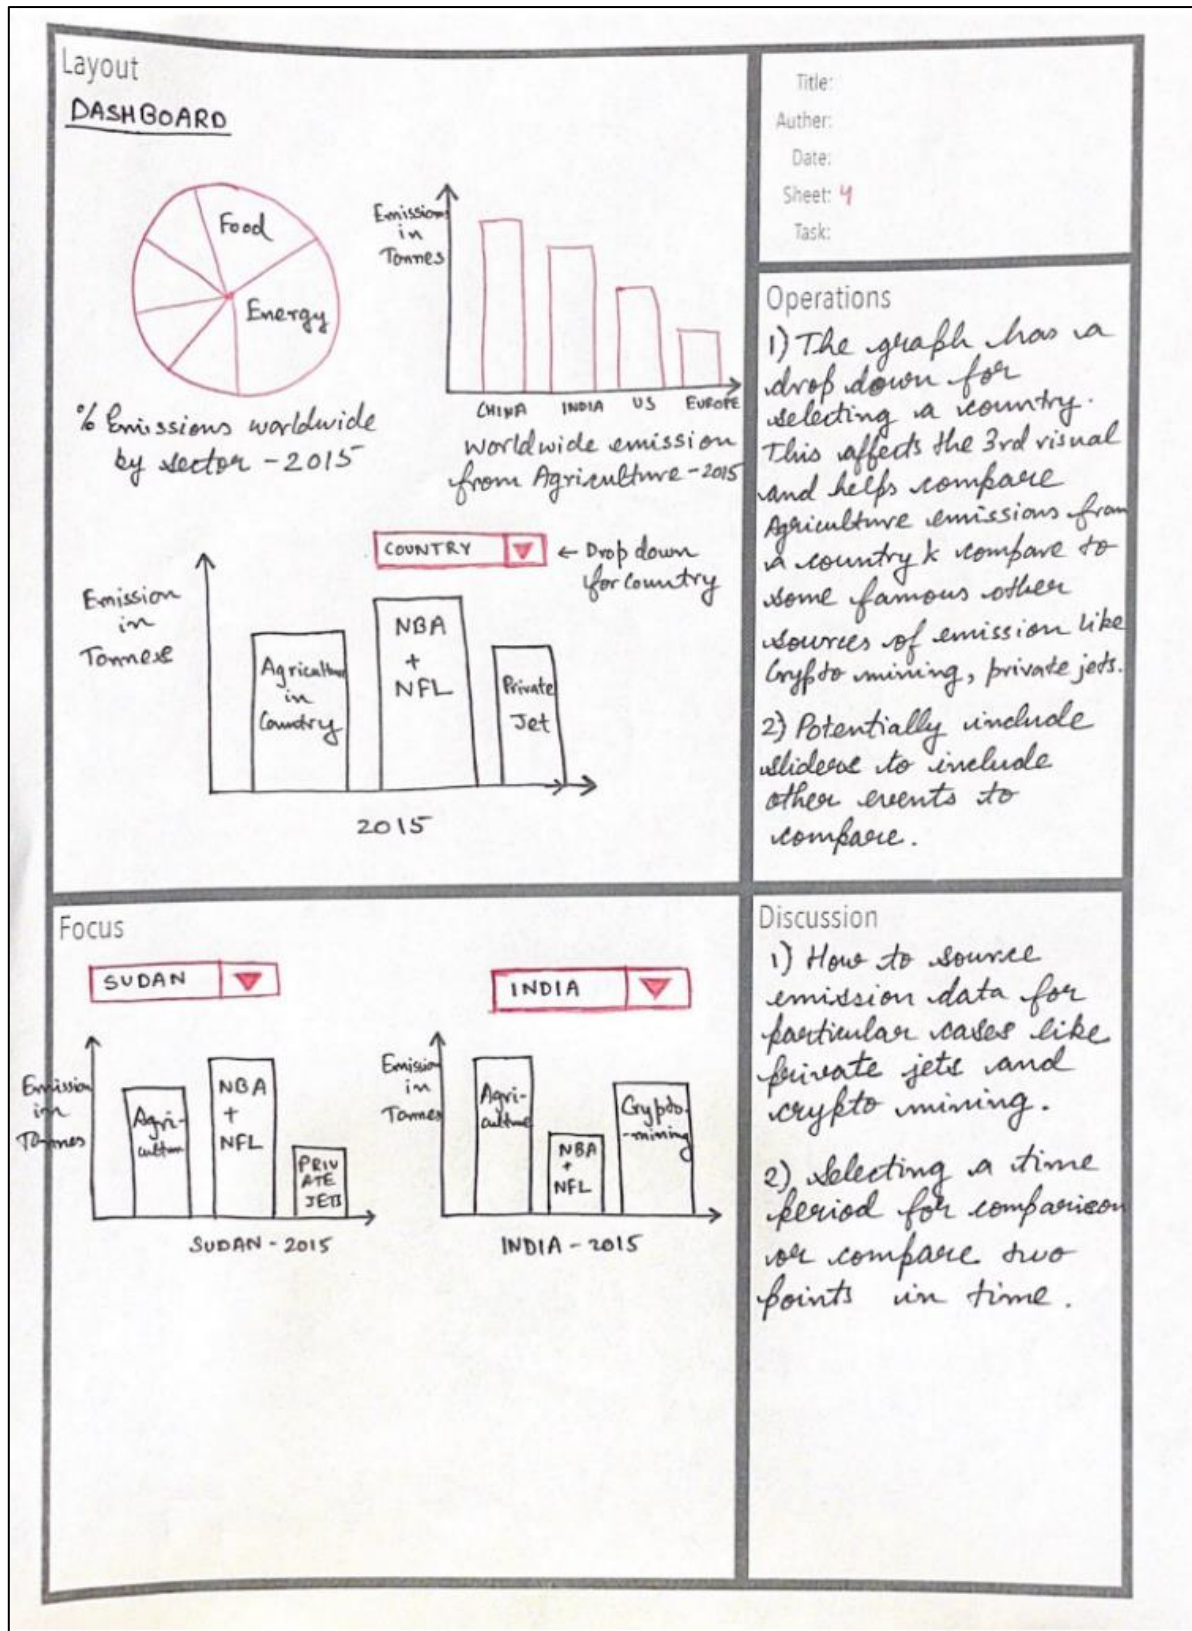 Layout
DASHBOARD
Food
Energy
% Emissions worldwide
by sector - 2015
Emissions
in
Tonnes
CHINA INDIA US EUROPE
Worldwide emission
from Agriculture - 2015
COUNTRY
← Drop down
for country
Emission
in
Tonnese
Agriculture
in
Country
NBA
+
NFL
Private
Jet
2015
Title:
Auther:
Date:
Sheet: 4
Task:
Operations
1) The graph has a
drop down for
selecting a country.
This affects the 3rd visual
and helps compare
Agriculture emissions from
a country & compare to
some famous other
sources of emission like
Crypto mining, private jets.
2) Potentially include
sliders to include
other events to
compare.
Focus
SUDAN
Emission
in
Tonnes
Agri-
culture
NBA
+
NFL
PRIV
ATE
JETS
SUDAN - 2015
INDIA
Emission
in
Tonnes
Agri-
culture
NBA
+
NFL
Crypto
-mining
INDIA - 2015
Discussion
1) How to source
emission data for
particular cases like
private jets and
crypto mining.
2) Selecting a time
period for comparison
or compare two
points in time.